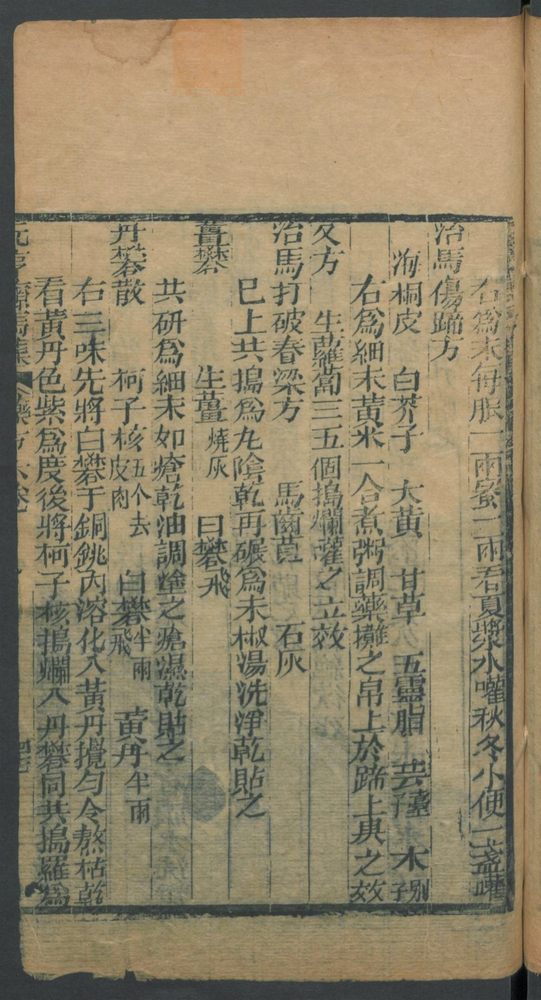 右爲末每服一兩蜜二兩春夏漿水嚾秋冬小便一盞嚾
治馬傷蹄方
海桐皮 白芥子 大黃 甘草 五靈脂 芸薹 木別子
右爲細末黃米一合煮粥調藥攤之帛上於蹄上與之效
又方 生蘿蔔三五個搗爛嚾之立效
治馬打破春梁方 馬齒莧 石灰
已上共搗爲丸陰乾再碾爲末椒湯洗淨乾貼之
薑礬 生薑燒灰 白礬飛
共研爲細末如瘡乾油調塗之瘡濕乾貼之
丹礬散 柯子核五个去皮肉 白礬半兩飛 黃丹半兩
右三味先將白礬于銅銚內溶化入黃丹攪勻令熬枯乾
看黃丹色紫爲度後將柯子核搗爛入丹礬同共搗羅爲
元亨療馬集 藥方六卷